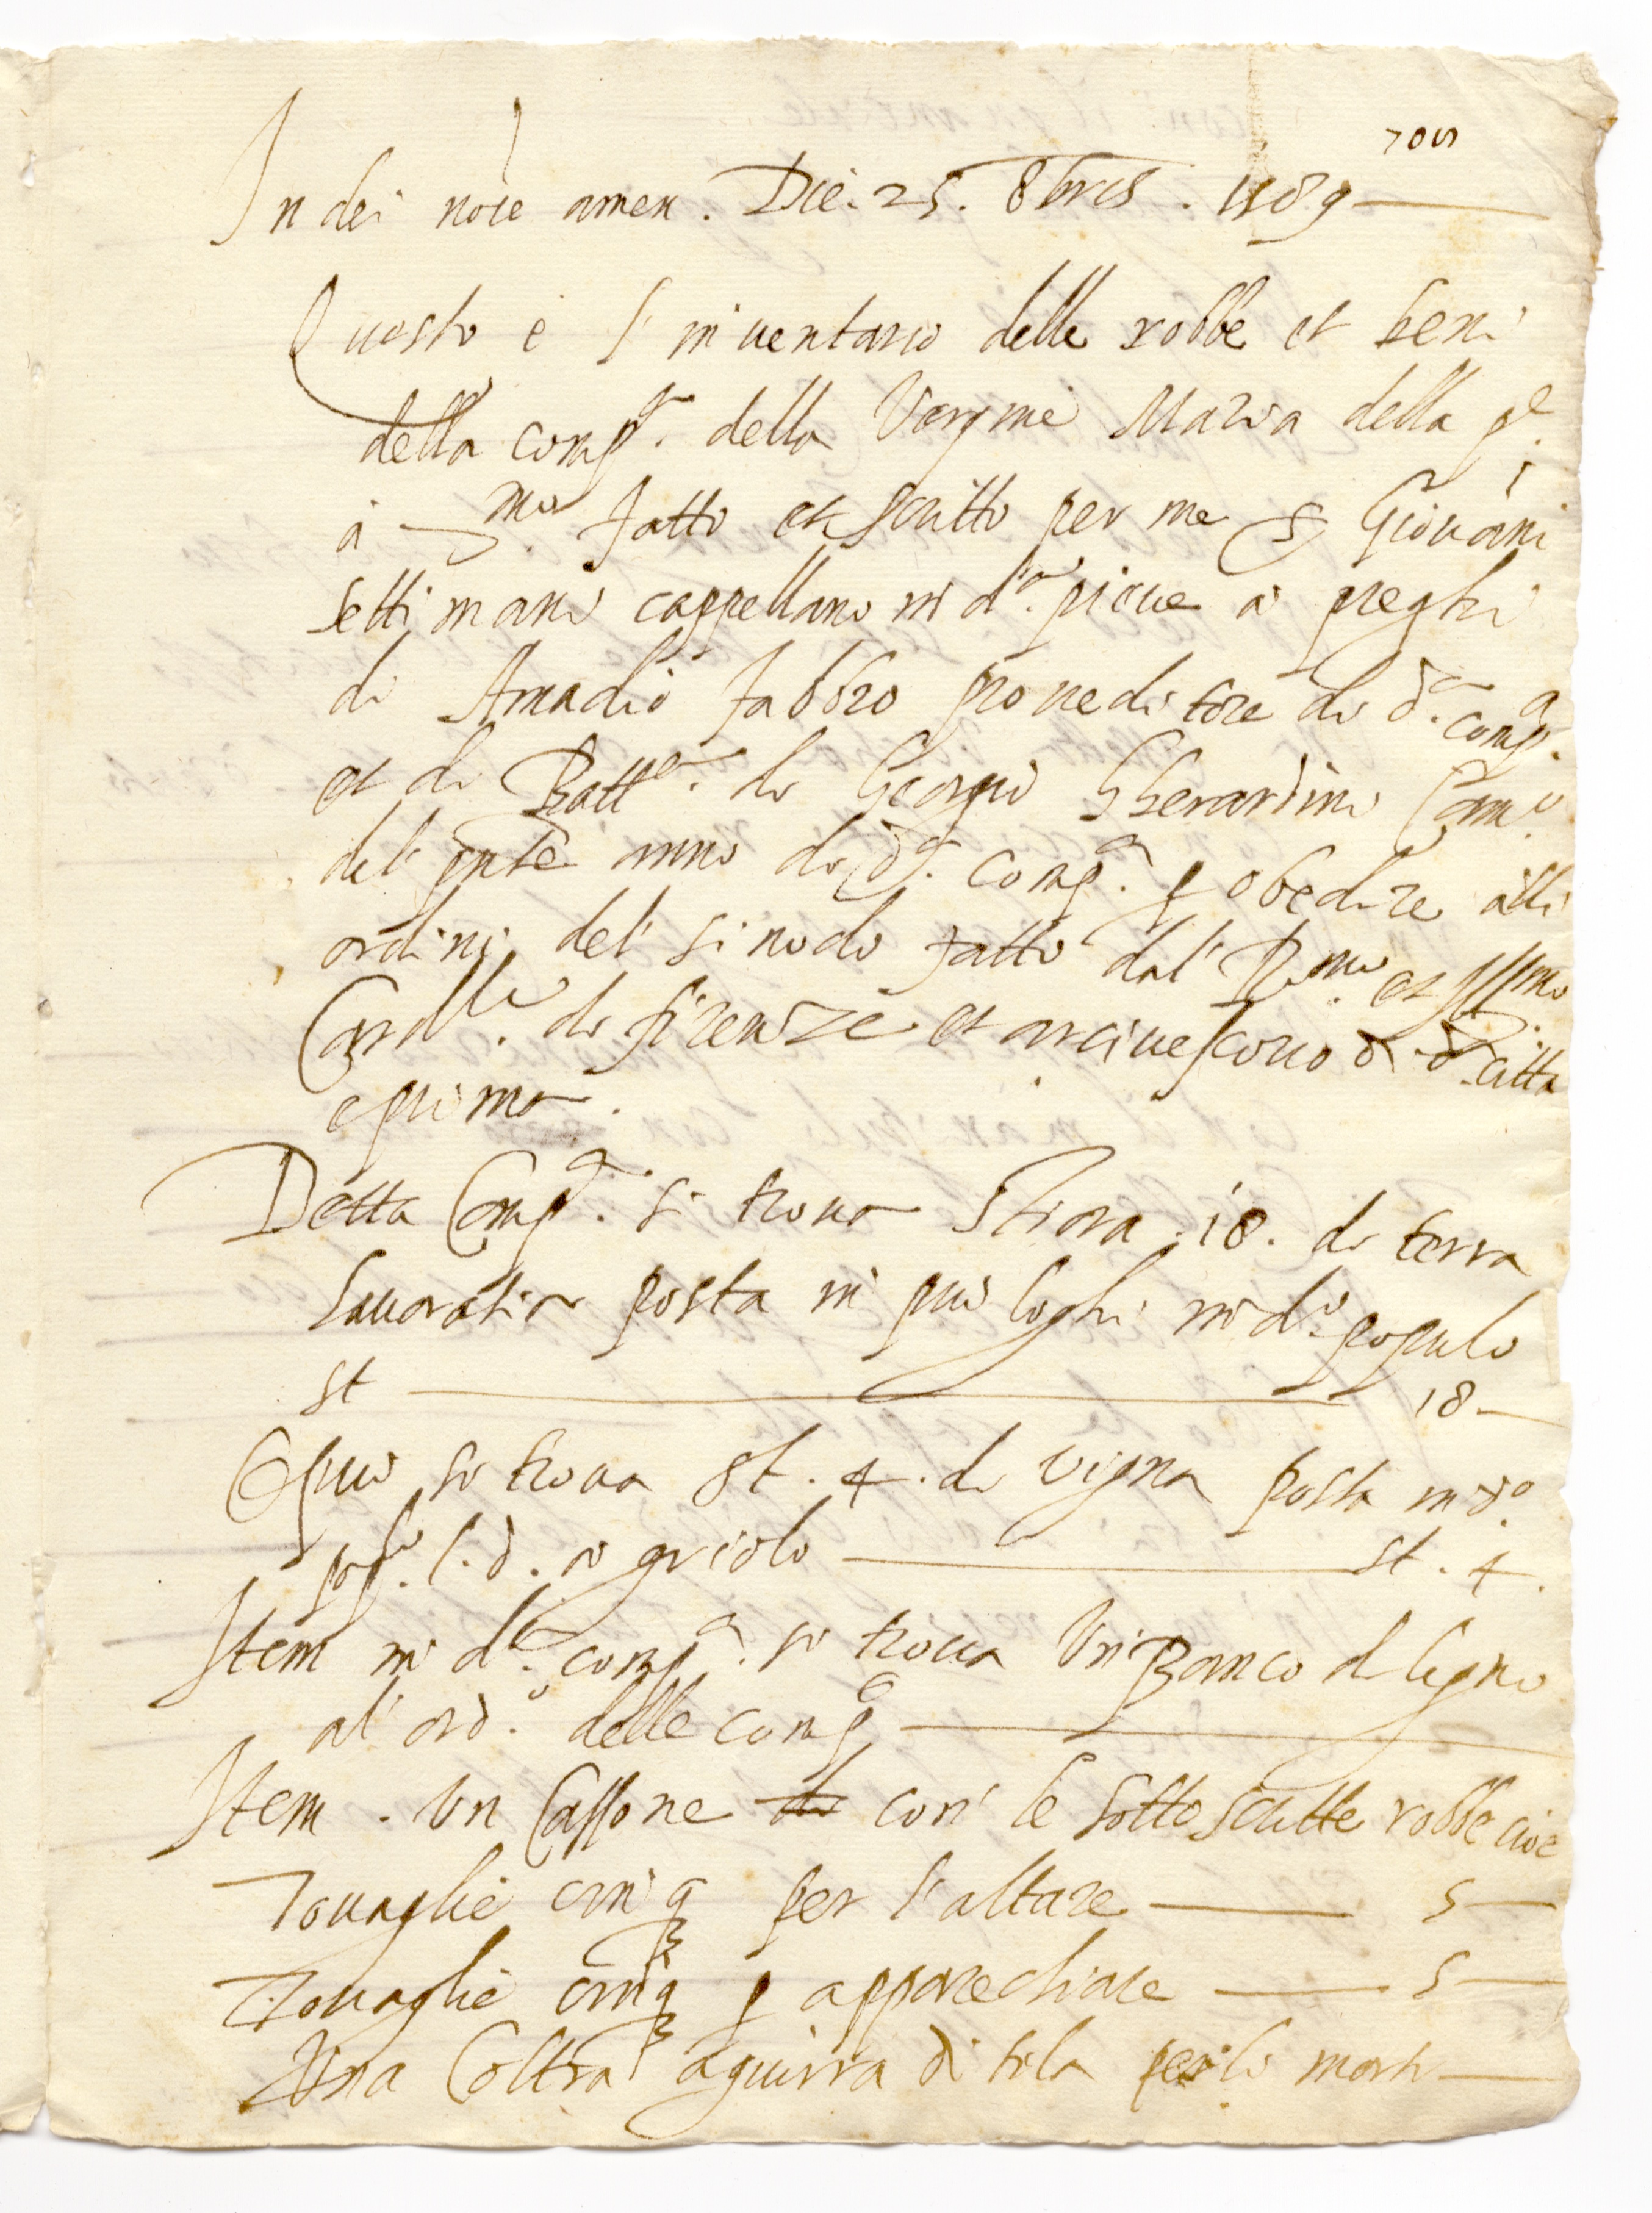 705
In dei noie amen. Die. 25. 8bris. 1589
Questo è l'inventario delle robbe et beni
della compa. della Vergine Maria della pe.
à mo. fatto et scritto per me S Giovãni
settimani cappellano in da. pieve à preghi
di Amadio fabbro proveditore di da. compa.
et di Batta. di Giorgio Gherardini Camo.
del pnte anno di da. compa. p obedire alli
ordini del sinodo fatto dal Rmo. et Illmo.
Cardlle. di firenze et arcivescovo di da. citta
e prima.
Detta Compa. si trova Stiora. 18. di terra
lavoratia posta in piu loghi in do. popolo
st 18
E piu si trova st. 4. di vigna posta in do.
popo. l. d. a griolo st. 4.
Item in da. compa. si trova Un Banco di legno
al ordo. delle compe
Item. Un Cassone con le sottoscritte robbe cioe
Tovaglie cinq per l'altare 5
Tovaglie cinq p apparechiare 5
Una Coltra di tela per li morti